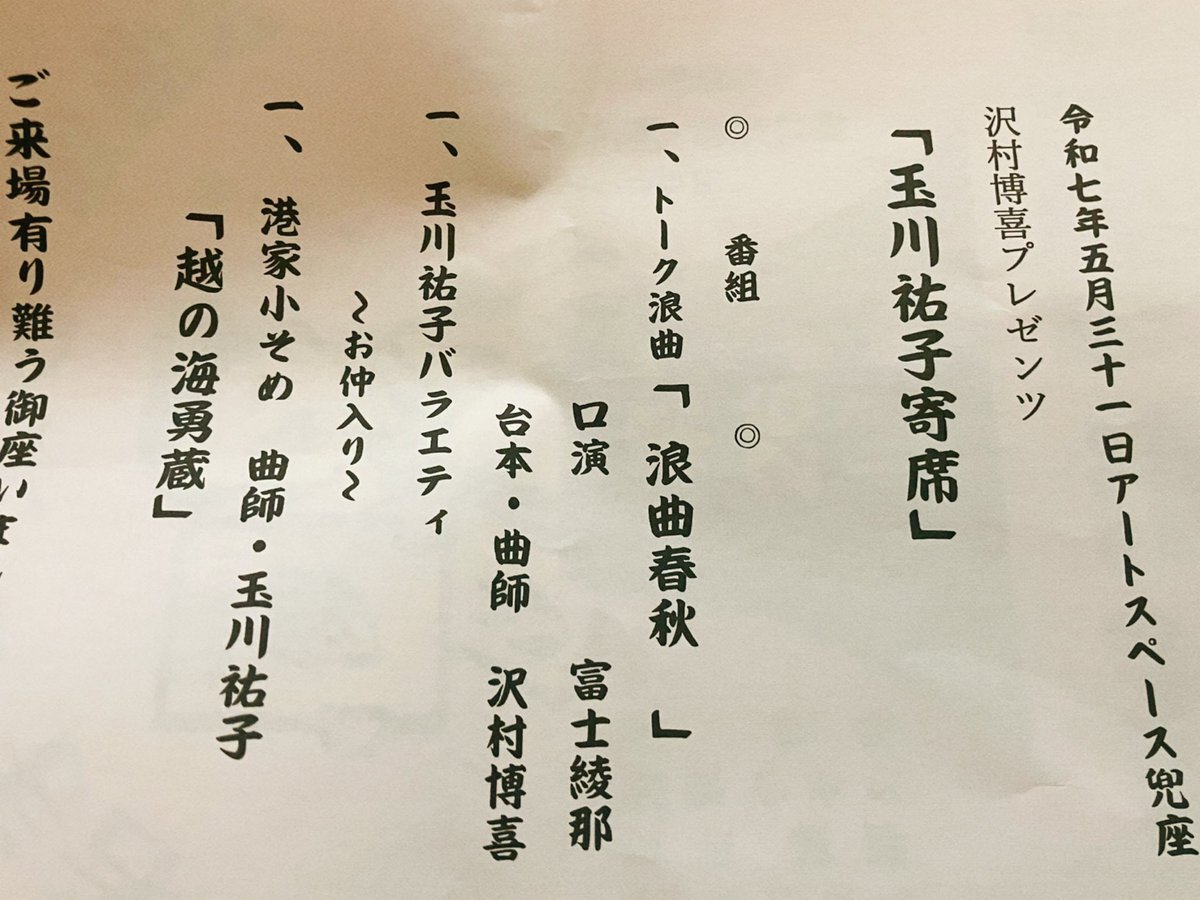 令和七年五月三十一日アートスペース兜座
沢村博喜プレゼンツ
「玉川祐子寄席」
◎ 番組 ◎
一、トーク浪曲「浪曲春秋 」
口演 富士綾那
台本・曲師 沢村博喜
一、玉川祐子バラエティ
～お仲入り～
一、 港家小そめ 曲師・玉川祐子
「越の海勇蔵」
ご来場有り難う御座いま